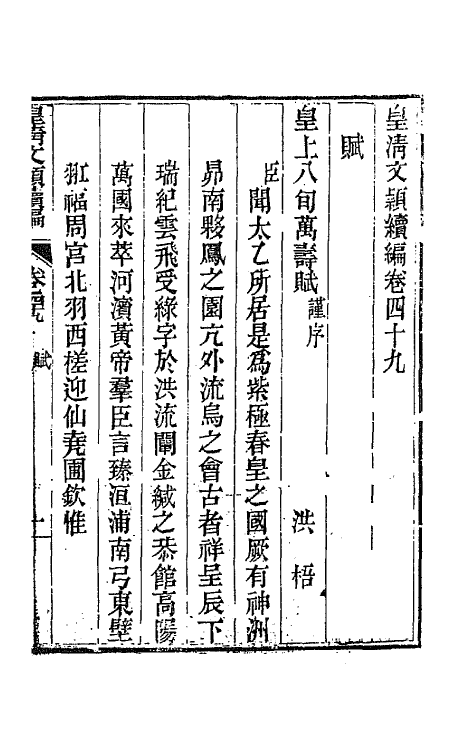 皇清文穎續編卷四十九
賦
皇上八旬萬壽賦 謹序 洪梧
臣聞太乙所居是爲紫極春皇之國厥有神洲
昴南夥鳳之園亢外流烏之會古者祥呈辰下
瑞紀雲飛受綠字於洪流闡金緘之恭館高陽
萬國來萃河濱黃帝羣臣言臻洹浦南弓東壁
羾福周宮北羽西槎迎仙堯圃欽惟
皇清文穎續編 卷四十九 賦 一